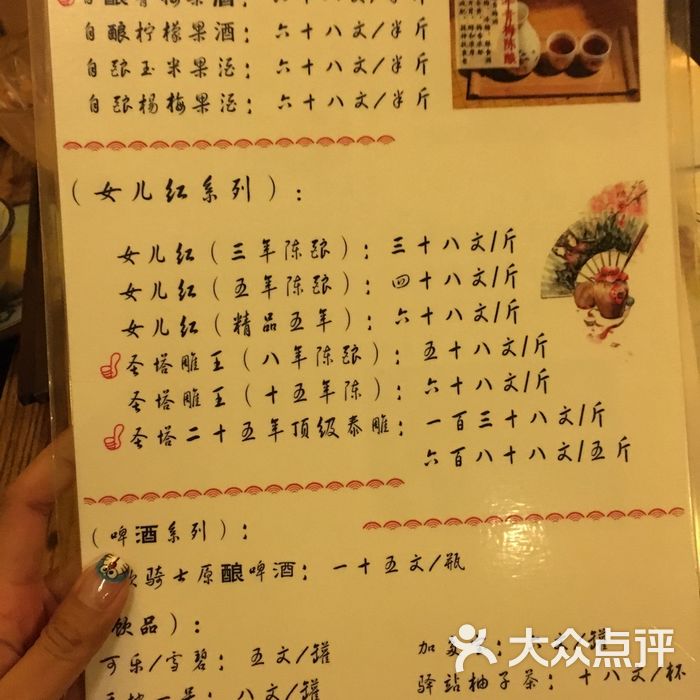 自酿青梅果酒：六十八文/半斤
自酿柠檬果酒：六十八文/半斤
自酿玉米果酒：六十八文/半斤
自酿杨梅果酒：六十八文/半斤
青梅陈酿
（女儿红系列）：
女儿红（三年陈酿）：三十八文/斤
女儿红（五年陈酿）：四十八文/斤
女儿红（精品五年）：六十八文/斤
圣塔雕王（八年陈酿）：五十八文/斤
圣塔雕王（十五年陈）：六十八文/斤
圣塔二十五年顶级泰雕：一百三十八文/斤
六百八十八文/五斤
（啤酒系列）：
骑士原酿啤酒：一十五文/瓶
饮品）：
可乐/雪碧：五文/罐
加
文/罐
驿站柚子茶：十八文/杯
八文/罐
大众点评